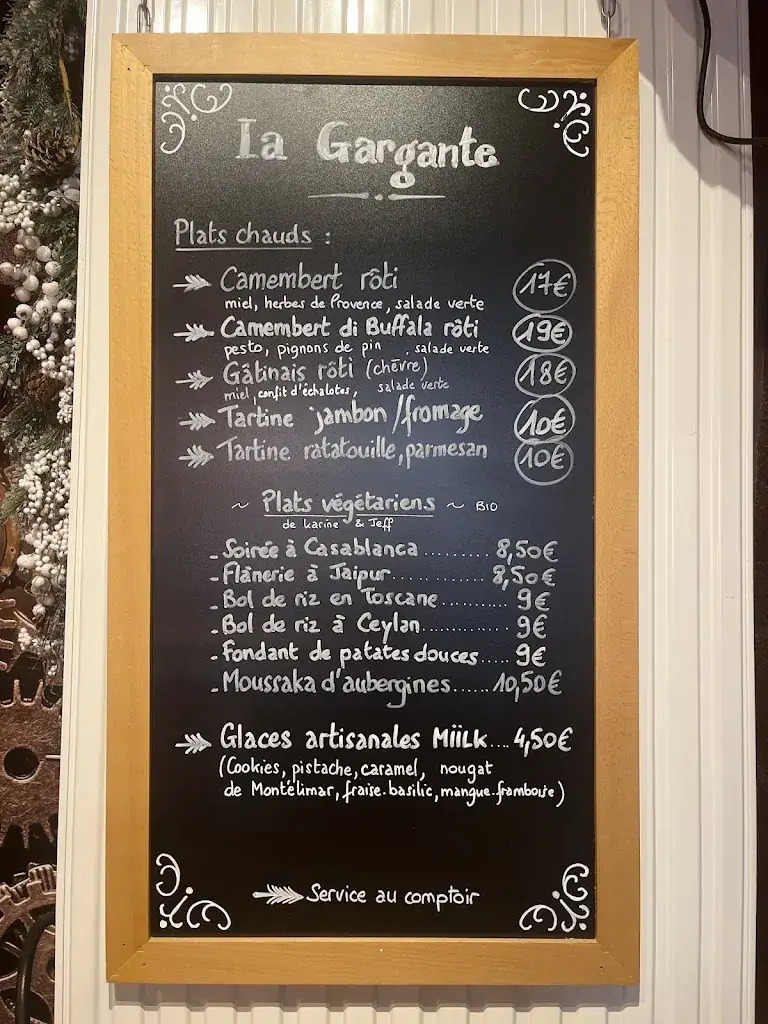 La Gargante
Plats chauds :
Camembert rôti 17€
miel, herbes de Provence, salade verte
Camembert di Buffala rôti 19€
pesto, pignons de pin , salade verte
Gâtinais rôti (chèvre) 18€
miel, confit d'échalotes, salade verte
Tartine jambon/fromage 10€
Tartine ratatouille, parmesan 10€
~ Plats végétariens ~ BIO
de Karine & Jeff
- Soirée à Casablanca ......... 8,50€
- Flânerie à Jaipur............ 8,50€
- Bol de riz en Toscane.......... 9€
- Bol de riz à Ceylan............ 9€
- Fondant de patates douces..... 9€
- Moussaka d'aubergines...... 10,50€
Glaces artisanales MiiLK.... 4,50€
(Cookies, pistache, caramel, nougat
de Montélimar, fraise-basilic, mangue-framboise)
Service au comptoir